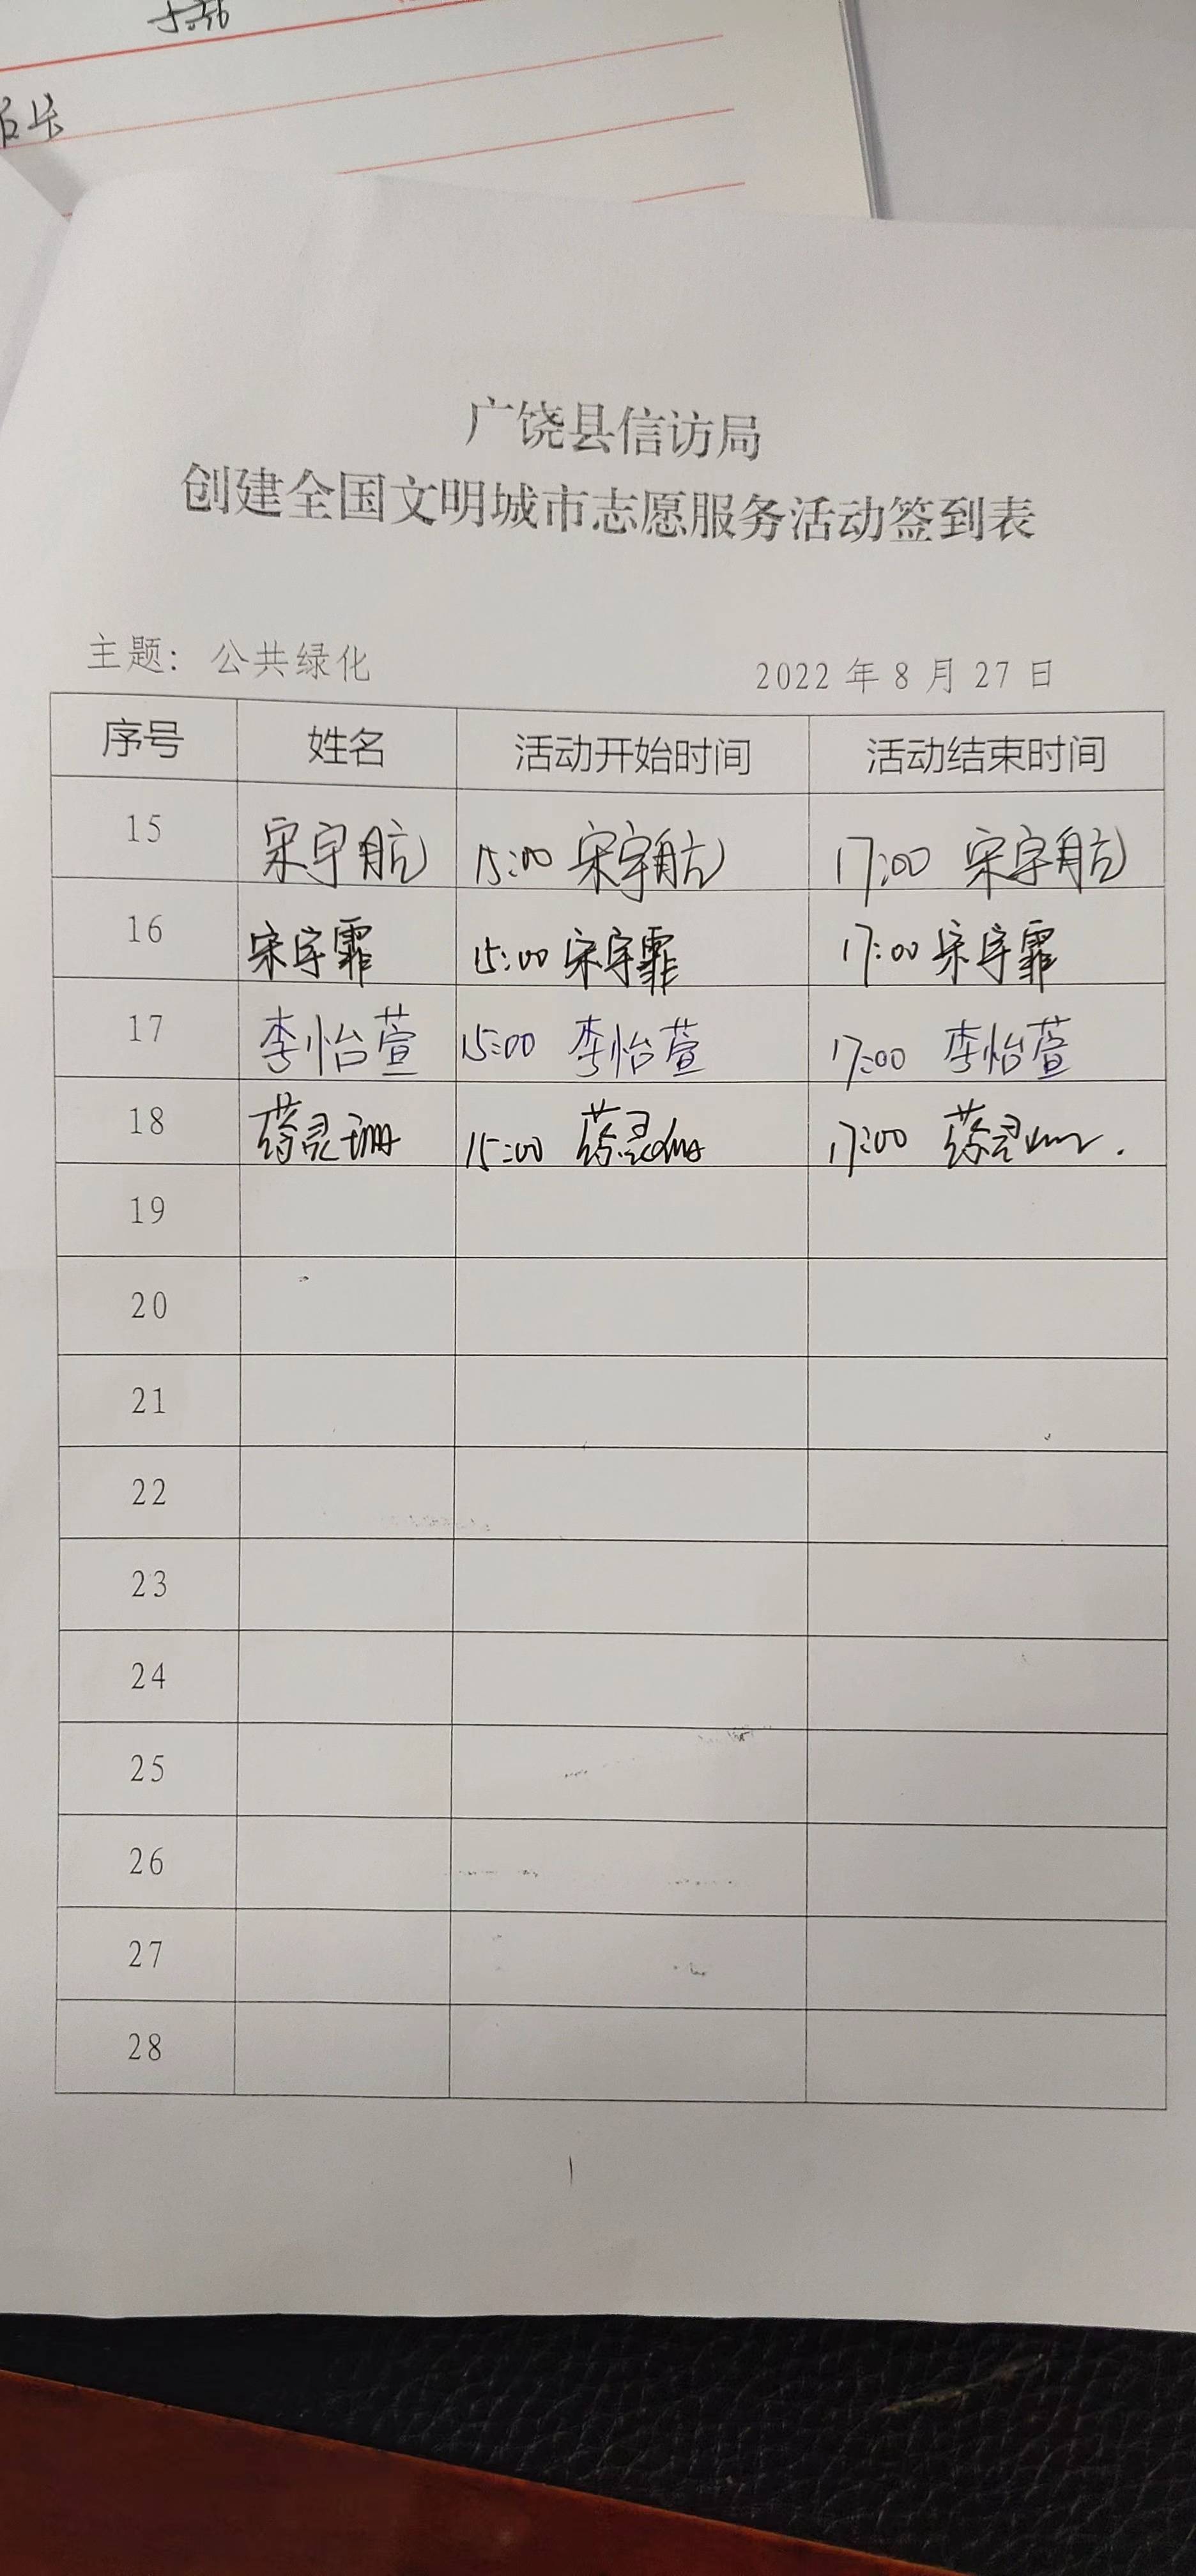 广饶县信访局
创建全国文明城市志愿服务活动签到表
主题：公共绿化 2022年8月27日
序号 姓名 活动开始时间 活动结束时间
15 宋宇航 15:00 宋宇航 17:00 宋宇航
16 宋宇霏 15:00 宋宇霏 17:00 宋宇霏
17 李怡萱 15:00 李怡萱 17:00 李怡萱
18 15:00 17:00
19
20
21
22
23
24
25
26
27
28